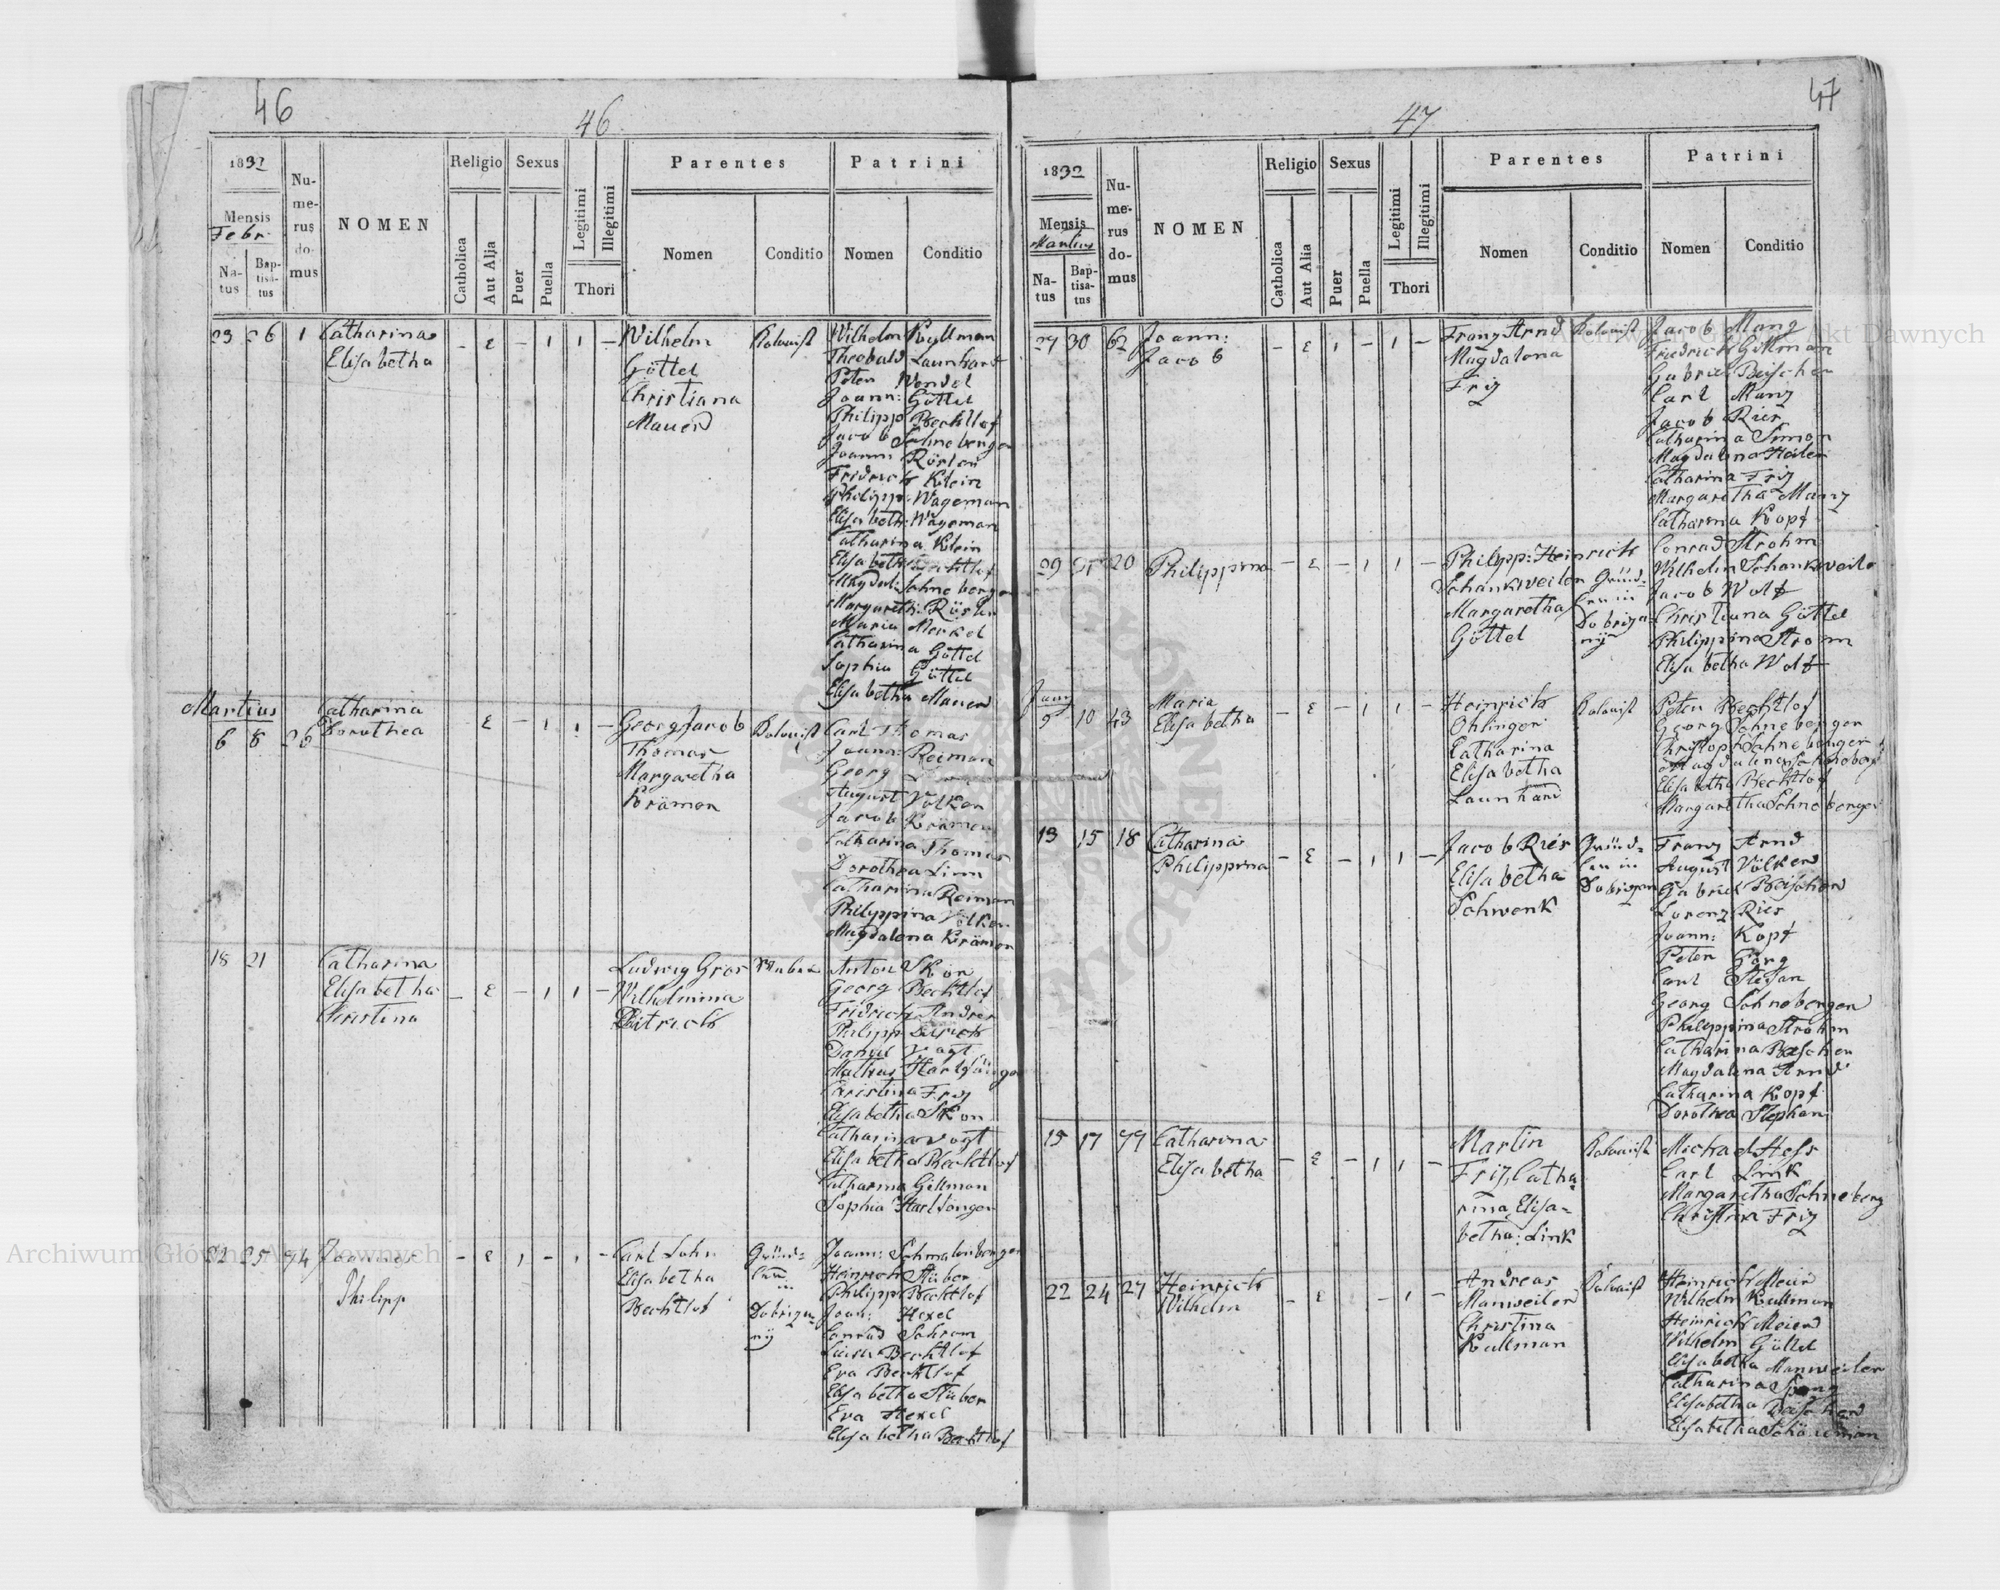 46
46
1832
Mensis
Febr.
Natus
Baptisatus
Numerus domus
NOMEN
Religio
Catholica
Aut Alja
Sexus
Puer
Puella
Legitimi
Illegitimi
Thori
Parentes
Nomen
Conditio
Patrini
Nomen
Conditio
23 26 1 Catharina - E - 1 1 - Wilhelm Kolonist Wilhelm Kullman
Elisabetha Göttel Theobald Launhard
Christiana Peter Wendel
Mauer Joann: Göttel
Philipp Bechtlof
Jacob Schneberger
Joann: Rösler
Fridrich Klein
Philipp: Wageman
Elisabeth: Wageman
Catharina Klein
Elisabeth Bechtlof
Magdal: Schneberger
Margareth: Rösler
Maria Merkel
Catharina Göttel
Sophia Göttel
Elisabetha Mauer
Martius
6 8 26 Catharina - E - 1 1 - Georg Jacob Kolonist Carl Thomas
Dorothea Thomas Joann: Reiman
Margaretha Georg
Krämer August Völker
Jacob Krämer
Catharina Thomas
Dorothea Linn
Catharina Reiman
Philippina Völker
Magdalena Krämer
18 21 Catharina - E - 1 1 - Ludwig Gros Anton Skon
Elisabetha Wilhelmina Georg Bechtlof
Christina Ditrich Fridrich Andres
Philipp Ditrich
Daniel Vogt
Mathias Hartsänger
Christina Friz
Elisabetha Skon
Catharina Vogt
Elisabetha Bechtlof
Catharina Gillman
Sophia Hartsönger
22 25 94 Joannes - E 1 - 1 - Carl Sohn Gründ- Joann: Schmalenberger
Philipp Elisabetha ler in Heinrich Stüber
Bechtlof Dobrza- Philipp Bechtlof
ny Joan: Hexel
Conrad Schram
Luisa Bechtlof
Eva Bechtlof
Elisabetha Stüber
Eva Hexel
Elisabetha Bechtlof
47
47
1832
Mensis
Martius
Natus
Baptisatus
Numerus domus
NOMEN
Religio
Catholica
Aut Alia
Sexus
Puer
Puella
Legitimi
Illegitimi
Thori
Parentes
Nomen
Conditio
Patrini
Nomen
Conditio
27 30 62 Joann: - E 1 - 1 - Franz Arnd Kolonist Jacob Manz
Jacob Magdalena Friedrich Gillman
Friz Gabriel Beischer
Carl Manz
Jacob Ries
Catharina Simon
Magdalena Heiler
Catharina Friz
Margaretha Manz
Catharina Kopf
29 31 20 Philippina - E - 1 1 - Philipp: Heinrich Conrad Strohm
Schankweiler Gründ- Wilhelm Schankweiler
Margaretha ler in Jacob Wolf
Göttel Dobrza- Christiana Göttel
ny Philippina Strohm
Elisabetha Wolf
9 10 43 Maria - E - 1 1 - Heinrich Kolonist Peter Bechtlof
Elisabetha Ohlinger Georg Schneberger
Catharina Christoph Schneberger
Elisabetha Magdalena Schneberg
Launhard Elisabetha Bechtlof
Margaretha Schneberger
13 15 18 Catharina - E - 1 1 - Jacob Ries Gründ- Franz Arnd
Philippina Elisabetha ler in August Völker
Schwenk Dobrzan Gabriel Beischer
Lorenz Ries
Joann: Kopf
Peter Görg
Carl Stefan
Georg Schneberger
Philippina Strohm
Catharina Beischer
Magdalena Arnd
Catharina Kopf
Dorothea Stephan
15 17 Catharina - E - 1 1 - Martin Kolonist Michael Hess
Elisabetha Friz, Catha- Carl Link
rina Elisa- Margaretha Schneberg
betha: Link Christina Friz
22 24 27 Heinrich - E - 1 - Andreas Kolonist Heinrich Meier
Wilhelm Manweiler Wilhelm Kullman
Christina Heinrich Meier
Kullman Wilhelm Göttel
Elisabetha Manweiler
Catharina Spang
Elisabetha Beischer
Elisabetha Schöneman
Archiwum Główne Akt Dawnych
Akt Dawnych